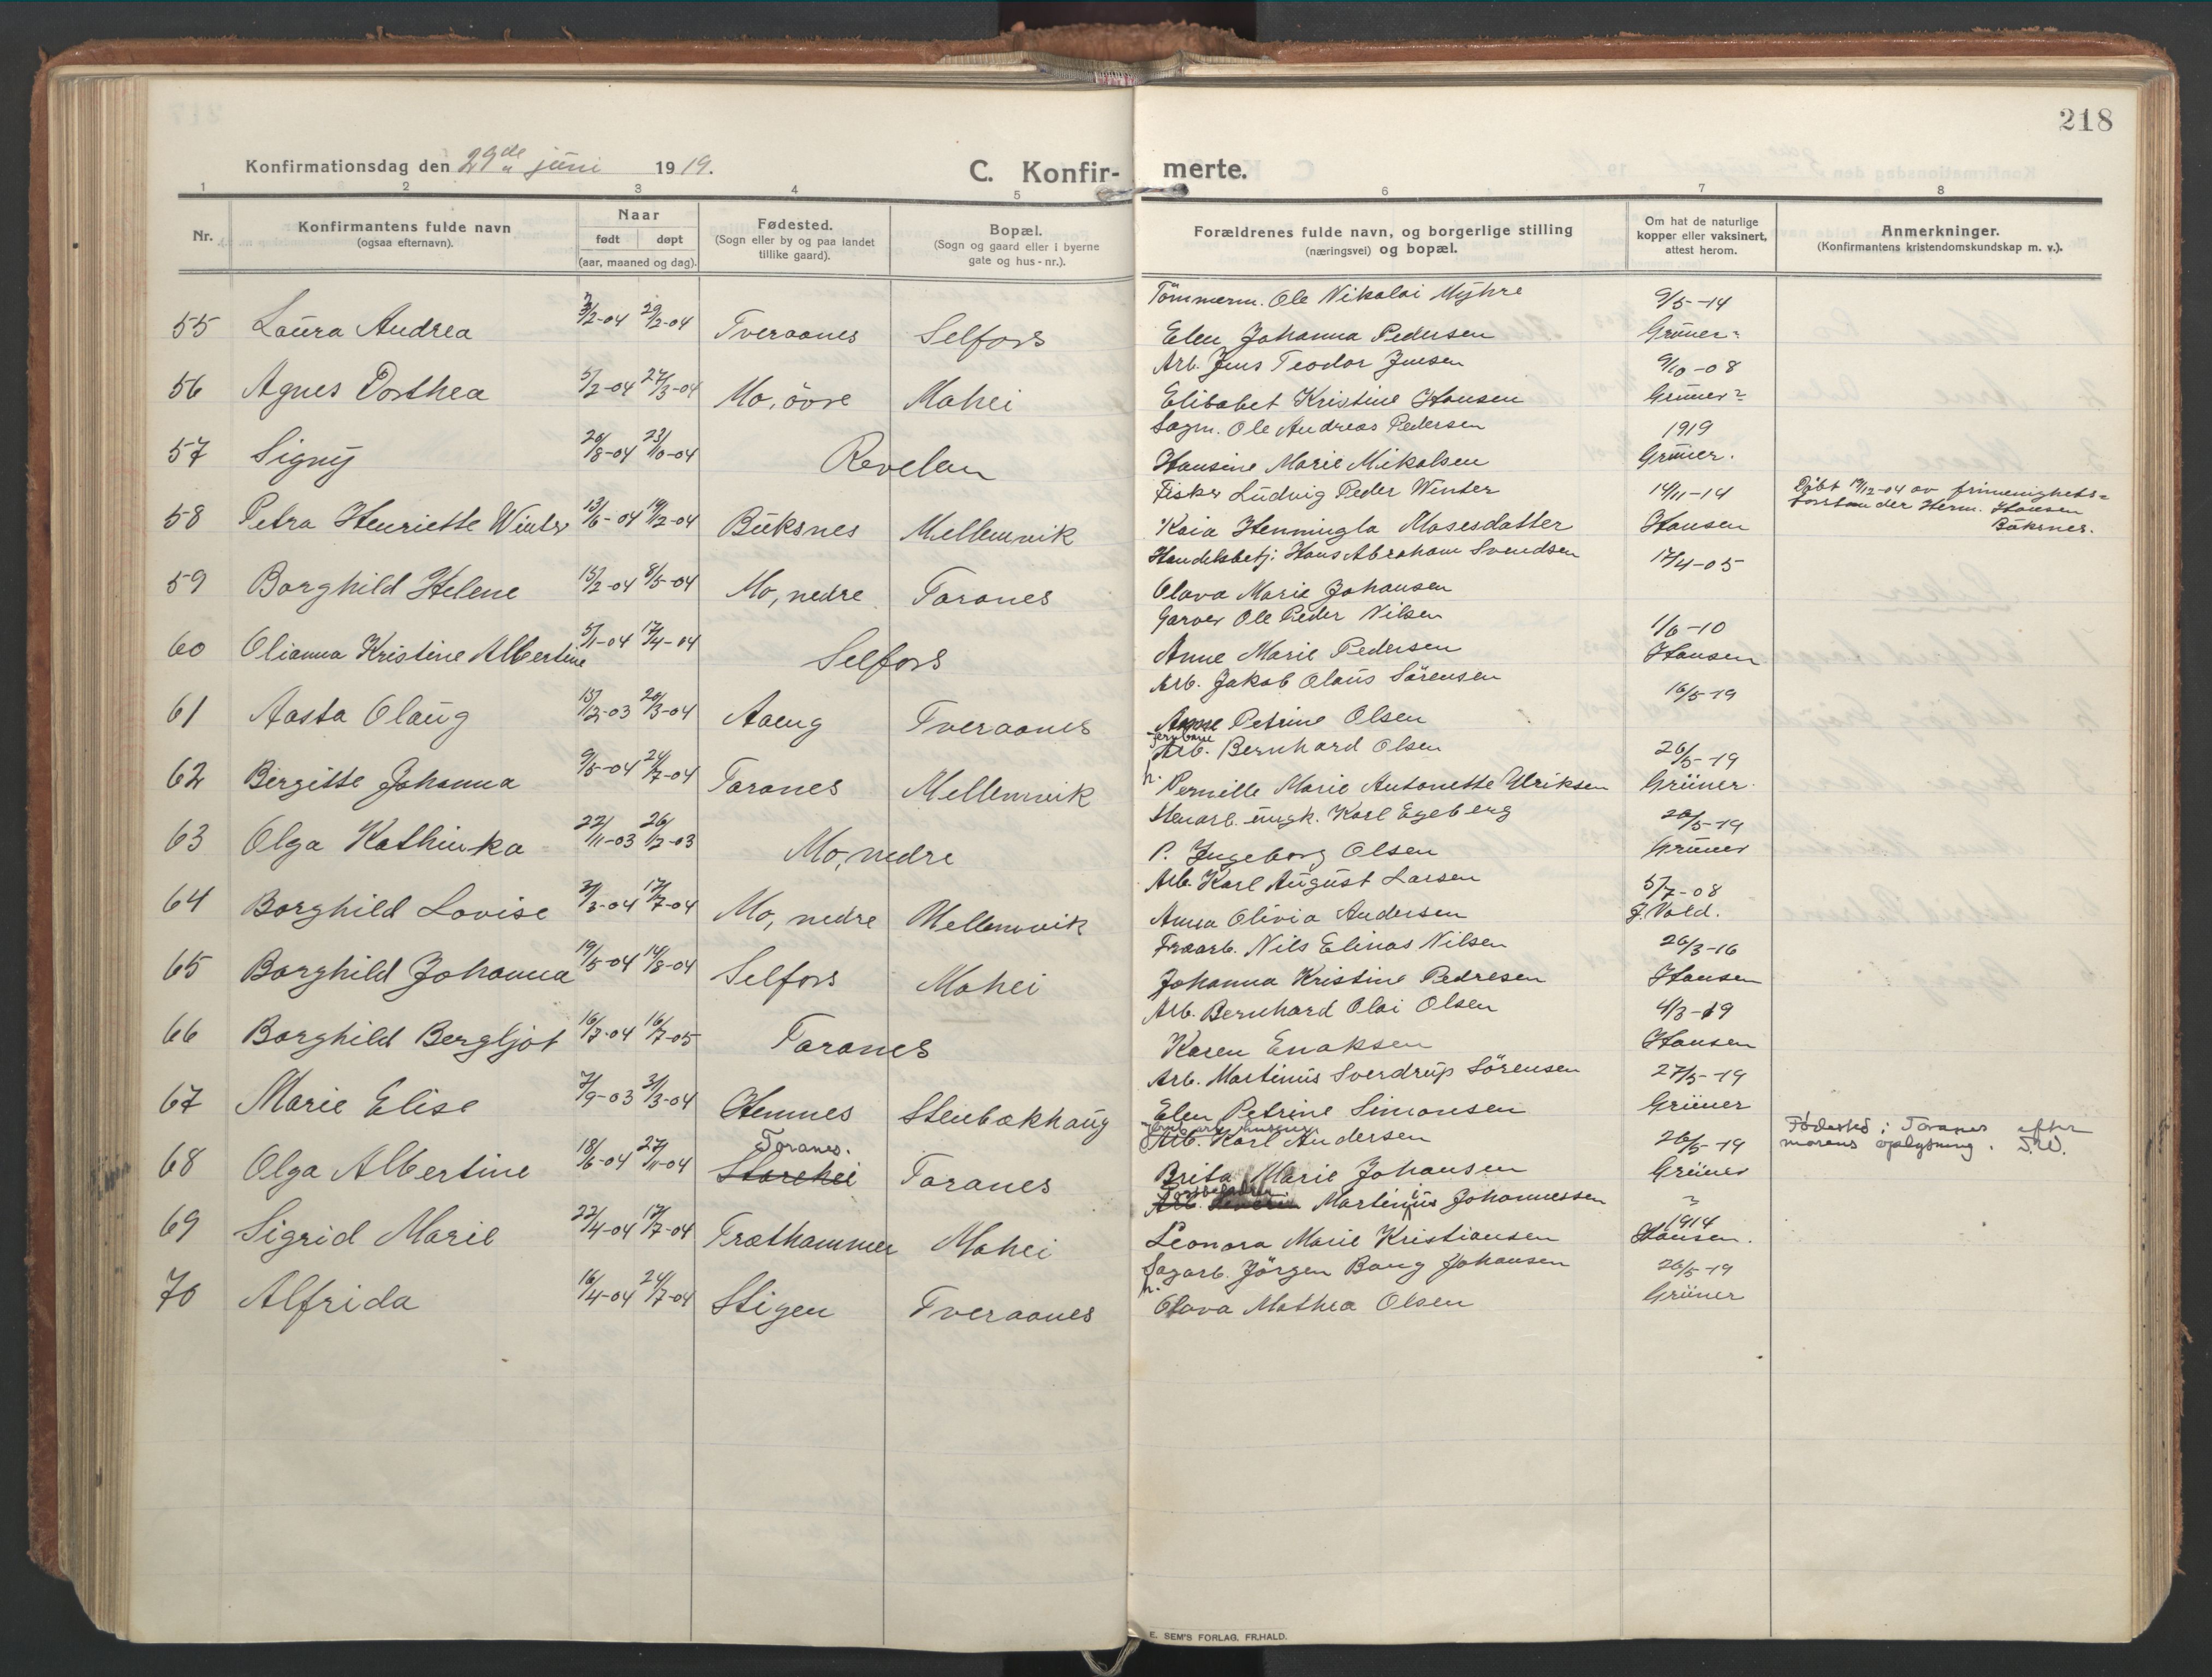 218
Konfirmationsdag den 29de juni 1919.
C. Konfir- merte.
1 2 3 4 5 6 7 8
Nr.
Konfirmantens fulde navn
(ogsaa efternavn).
Naar
født døpt
(aar, maaned og dag).
Fødested.
(Sogn eller by og paa landet
tillike gaard).
Bopæl.
(Sogn og gaard eller i byerne
gate og hus-nr.).
Forældrenes fulde navn, og borgerlige stilling
(næringsvei) og bopæl.
Om hat de naturlige
kopper eller vaksinert,
attest herom.
Anmerkninger.
(Konfirmantens kristendomskundskap m. v.).
Tömmerm. Ole Nikolai Myhre 9/5-14
55 Laura Andrea 3/2-04 29/2-04 Tveraanes Selfors Elen Johanna Pedersen Grüner
Arb. Jens Teodor Jensen 9/10-08
56 Agnes Dorthea 5/2-04 27/3-04 Mo, övre Mohei Elisabet Kristine Hansen Grüner
Sagm. Ole Andreas Pedersen 1919
57 Signy 20/8-04 23/10-04 Revelen Hansine Marie Mikalsen Grüner.
Fisker Ludvig Peder Winter 14/11-14 Döbt 19/12-04 av frimenigheds-
forstander Herm. Hansen
58 Petra Henriette Winter 13/6-04 19/12-04 Buksnes Mellemvik Kaia Henningla Mosesdatter Hansen Buksnes.
Handelsbetj. Hans Abraham Svendsen 17/4-05
59 Borghild Helene 15/2-04 8/5-04 Mo, nedre Toranes Olava Marie Johansen
Garver Ole Peder Nilsen 1/6-10
60 Olianna Kristine Albertine 5/1-04 17/4-04 Selfors Anne Marie Pedersen Hansen
Arb. Jakob Olaus Sörensen 16/5-19
61 Aasta Olaug 15/12-03 20/3-04 Aaeng Tveraanes Petrine Olsen
jernbane
Arb. Bernhard Olsen 26/5-19
62 Bergitte Johanna 9/5-04 24/7-04 Toranes Mellemvik h. Pernille Marie Antonette Ulriksen Grüner.
Stenarb. ungk. Karl Egeberg 26/5-19
63 Olga Kathinka 22/11-03 26/12-03 Mo, nedre P. Ingeborg Olsen Grüner
Arb. Karl August Larsen 5/7-08
64 Borghild Lovise 3/3-04 17/7-04 Mo, nedre Mellemvik Anna Olivia Andersen J. Vold.
Fraarb. Nils Elinas Nilsen 26/3-16
65 Borghild Johanna 19/5-04 14/8-04 Selfors Mohei Johanna Kristine Pedresen Hansen
Arb. Bernhard Olai Olsen 4/3-19
66 Borghild Bergljot 16/7-04 16/7-05 Toranes Karen Enoksen Hansen
Arb. Martinus Sverdrup Sörensen 27/5-19
67 Marie Elise 7/9-03 3/3-04 Hemnes Stenbækhaug Elen Petrine Simonsen Grüner
Arb. Karl Andersen 26/5-19 Födested: Toranes efter
morens oplysning. T.W.
Toranes.
68 Olga Albertine 18/6-04 27/11-04 Storehei Toranes Brita Marie Johansen Grüner
Arb. Martinius Johannessen 1914
69 Sigrid Marie 22/4-04 17/7-04 Træthammer Mohei Leonora Marie Kristiansen Hansen.
Sagarb. Jörgen Bang Johansen 26/5-19
70 Alfrida 16/4-04 24/7-04 Stigen Tveraanes h. Olava Mathea Olsen Grüner
E. SEM'S FORLAG, FR.HALD.